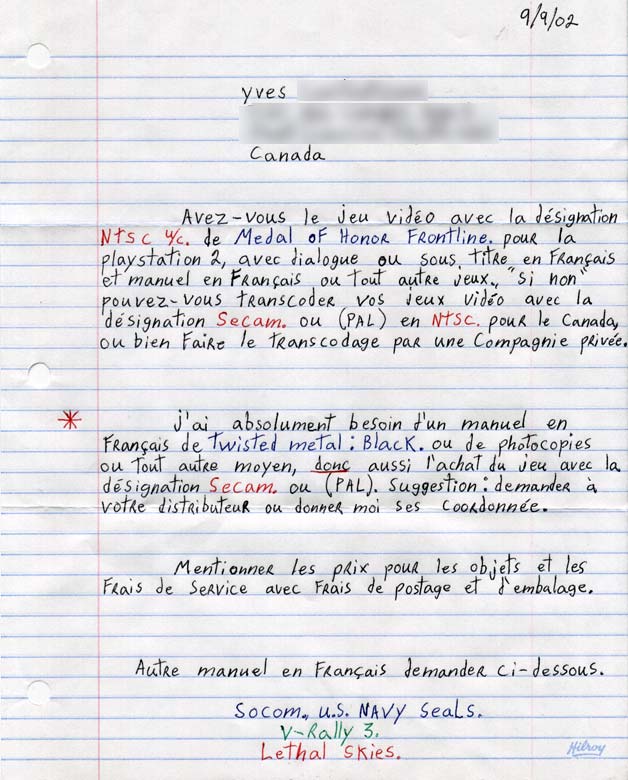 9/9/02
yves
Canada
Avez-vous le jeu vidéo avec la désignation
NTSC U/C. de Medal of Honor Frontline. pour la
playstation 2, avec dialogue ou sous, titre en Français
et manuel en Français ou tout autre jeux., "si non"
pouvez-vous transcoder vos jeux vidéo avec la
désignation Secam. ou (PAL) en NTSC. pour le Canada,
ou bien Faire le transcodage par une Compagnie privée.
* j'ai absolument besoin d'un manuel en
Français de Twisted metal: Black. ou de photocopies
ou tout autre moyen, donc aussi l'achat du jeu avec la
désignation Secam. ou (PAL). Suggestion: demander à
votre distributeur ou donner moi ses coordonnée.
Mentionner les prix pour les objets et les
Frais de Service avec Frais de postage et d'embalage.
Autre manuel en Français demander ci-dessous.
Socom., U.S. NAVY Seals.
V-Rally 3.
Lethal Skies.
Hilroy